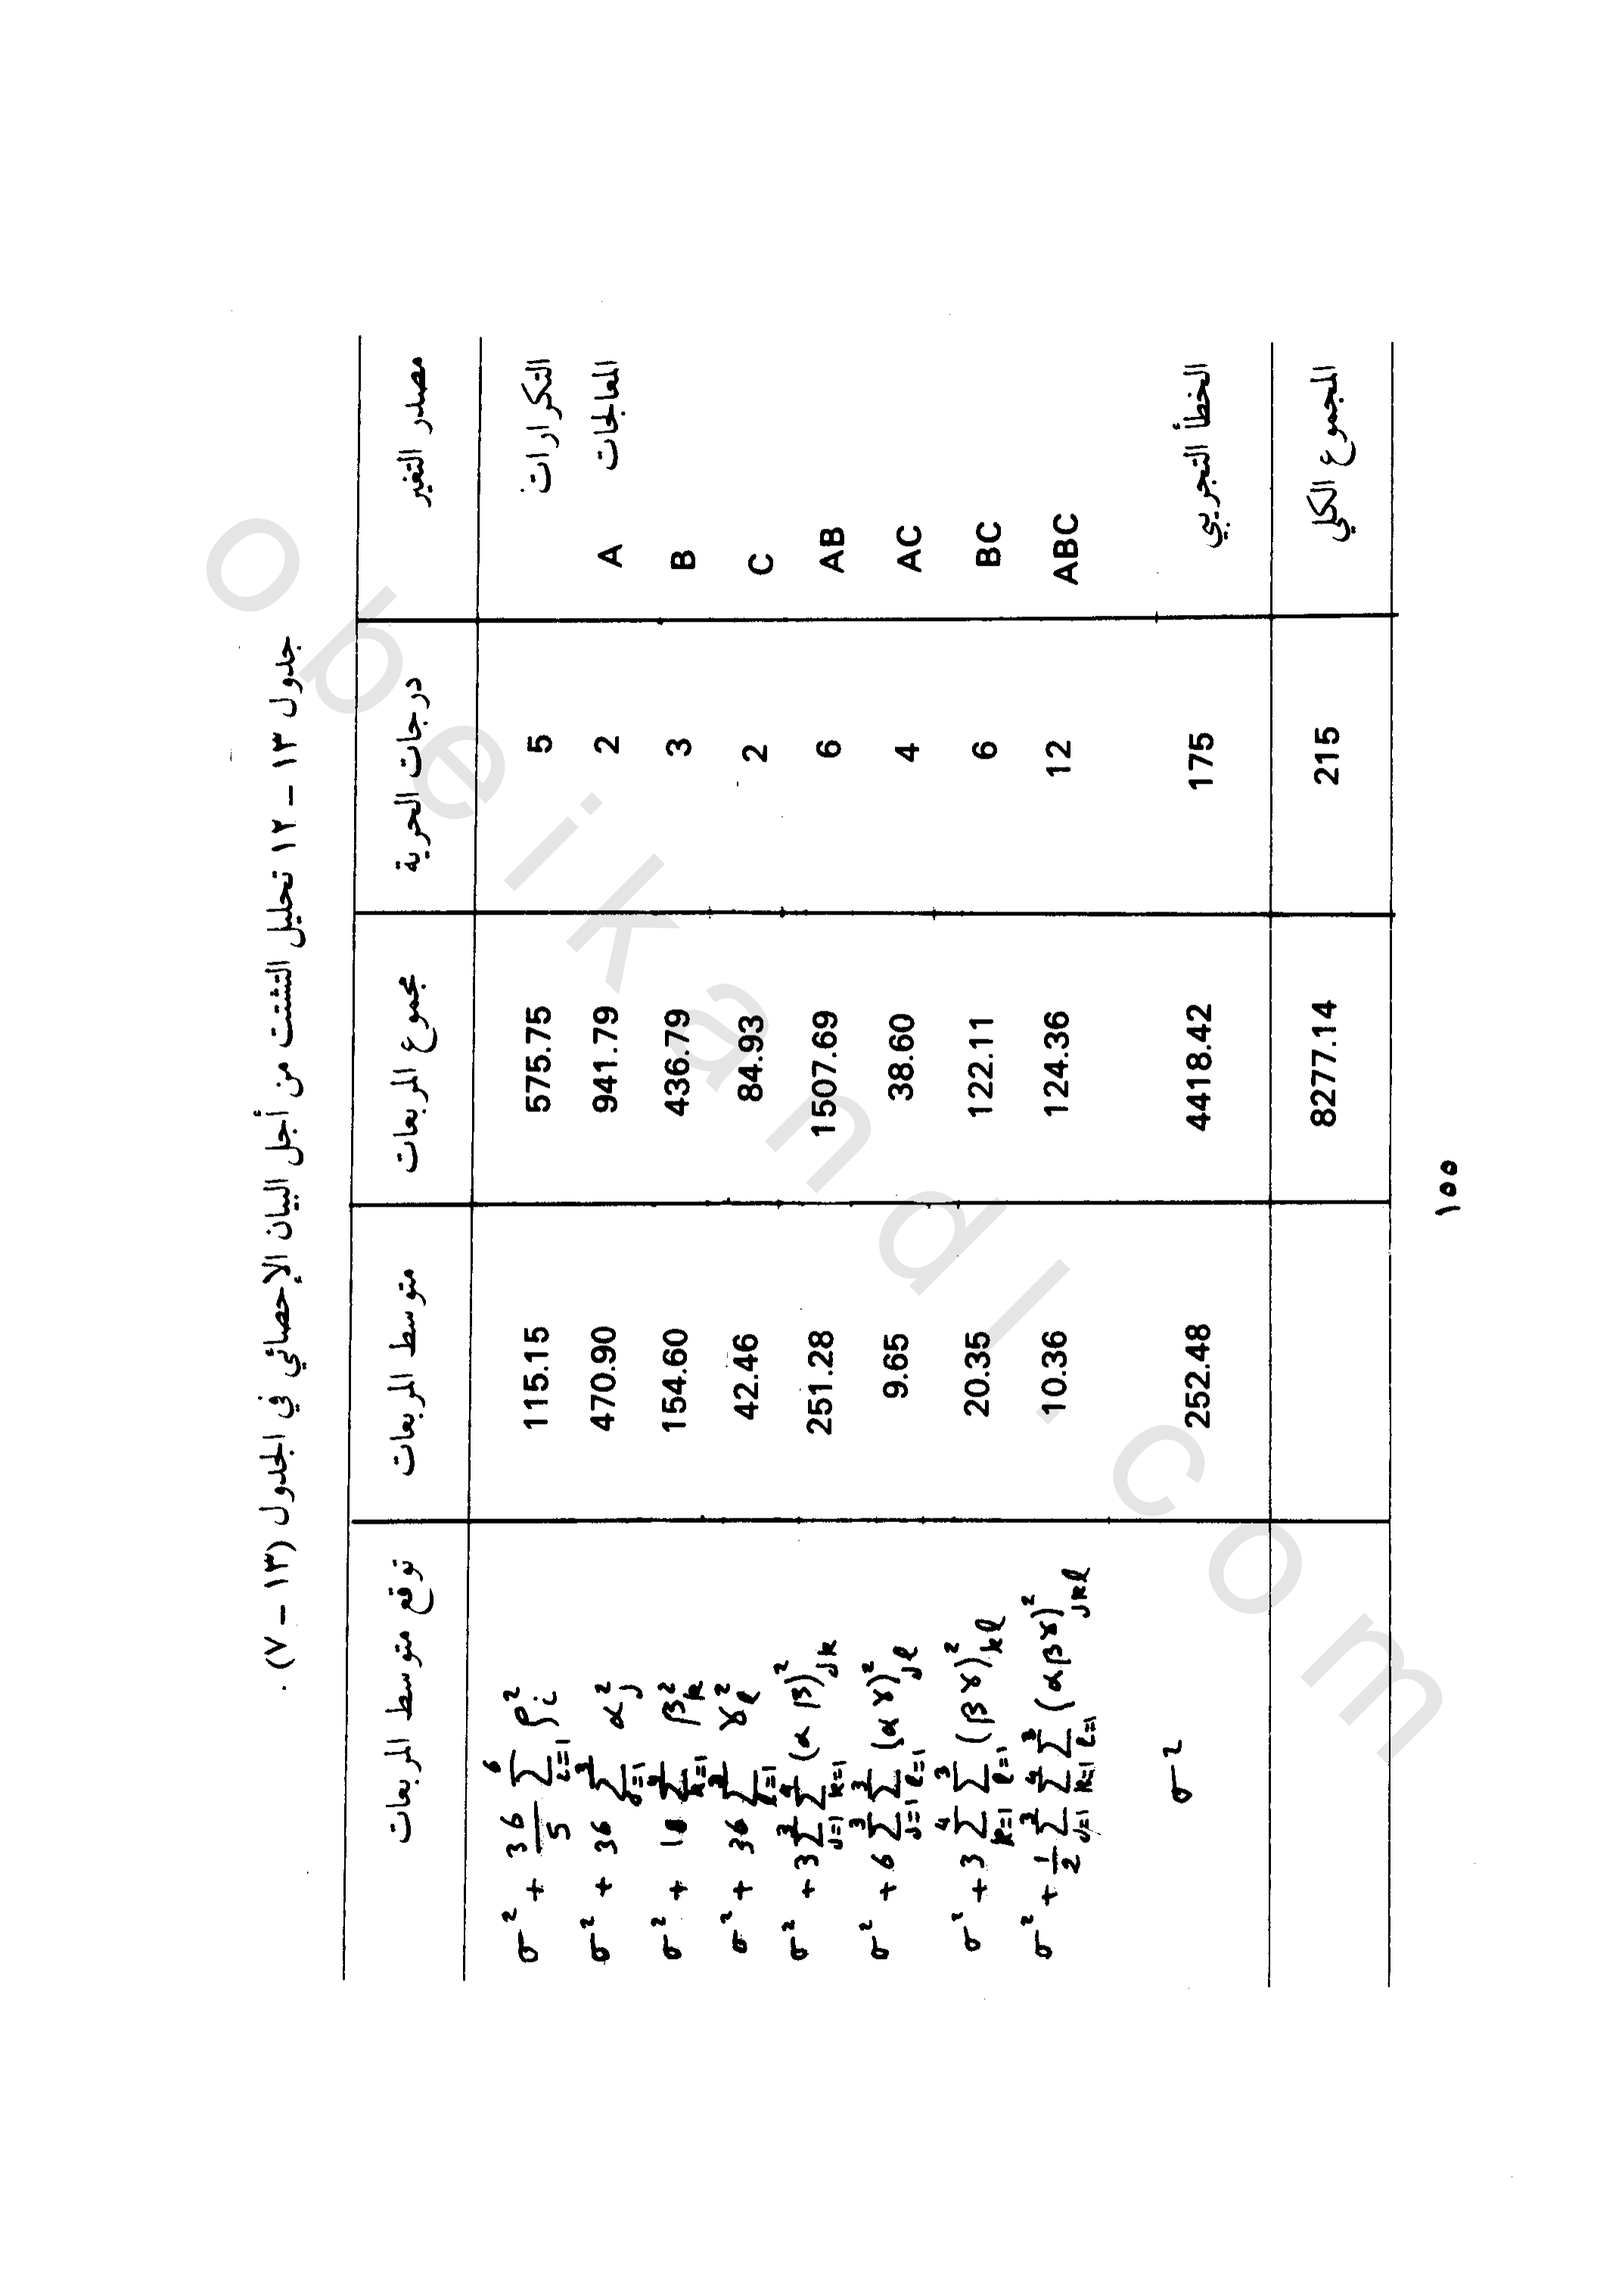 جدول ١٣ – ١٢ تحليل التشتت من أجل البيان الإحصائي في الجدول (١٣ – ٧).
مصدر التغير درجات الحرية مجموع المربعات متوسط المربعات توقع متوسط المربعات
التكرارات 5 575.75 115.15 σ² + 36/5 Σ_{i=1}^{6} ρ_i²
المعالجات A 2 941.79 470.90 σ² + 36 Σ_{j=1}^{3} α_j²
B 3 436.79 154.60 σ² + 18 Σ_{k=1}^{4} β_k²
C 2 84.93 42.46 σ² + 36 Σ_{ℓ=1}^{3} γ_ℓ²
AB 6 1507.69 251.28 σ² + 3 Σ_{j=1}^{3} Σ_{k=1}^{4} (αβ)²_{jk}
AC 4 38.60 9.65 σ² + 6 Σ_{j=1}^{3} Σ_{ℓ=1}^{3} (αγ)²_{jℓ}
BC 6 122.11 20.35 σ² + 3 Σ_{k=1}^{4} Σ_{ℓ=1}^{3} (βγ)²_{kℓ}
ABC 12 124.36 10.36 σ² + 1/2 Σ_{j=1}^{3} Σ_{k=1}^{4} Σ_{ℓ=1}^{3} (αβγ)²_{jkℓ}
الخطأ التجريبي 175 4418.42 252.48 σ²
المجموع الكلي 215 8277.14
١٥٥
obeikandl.com